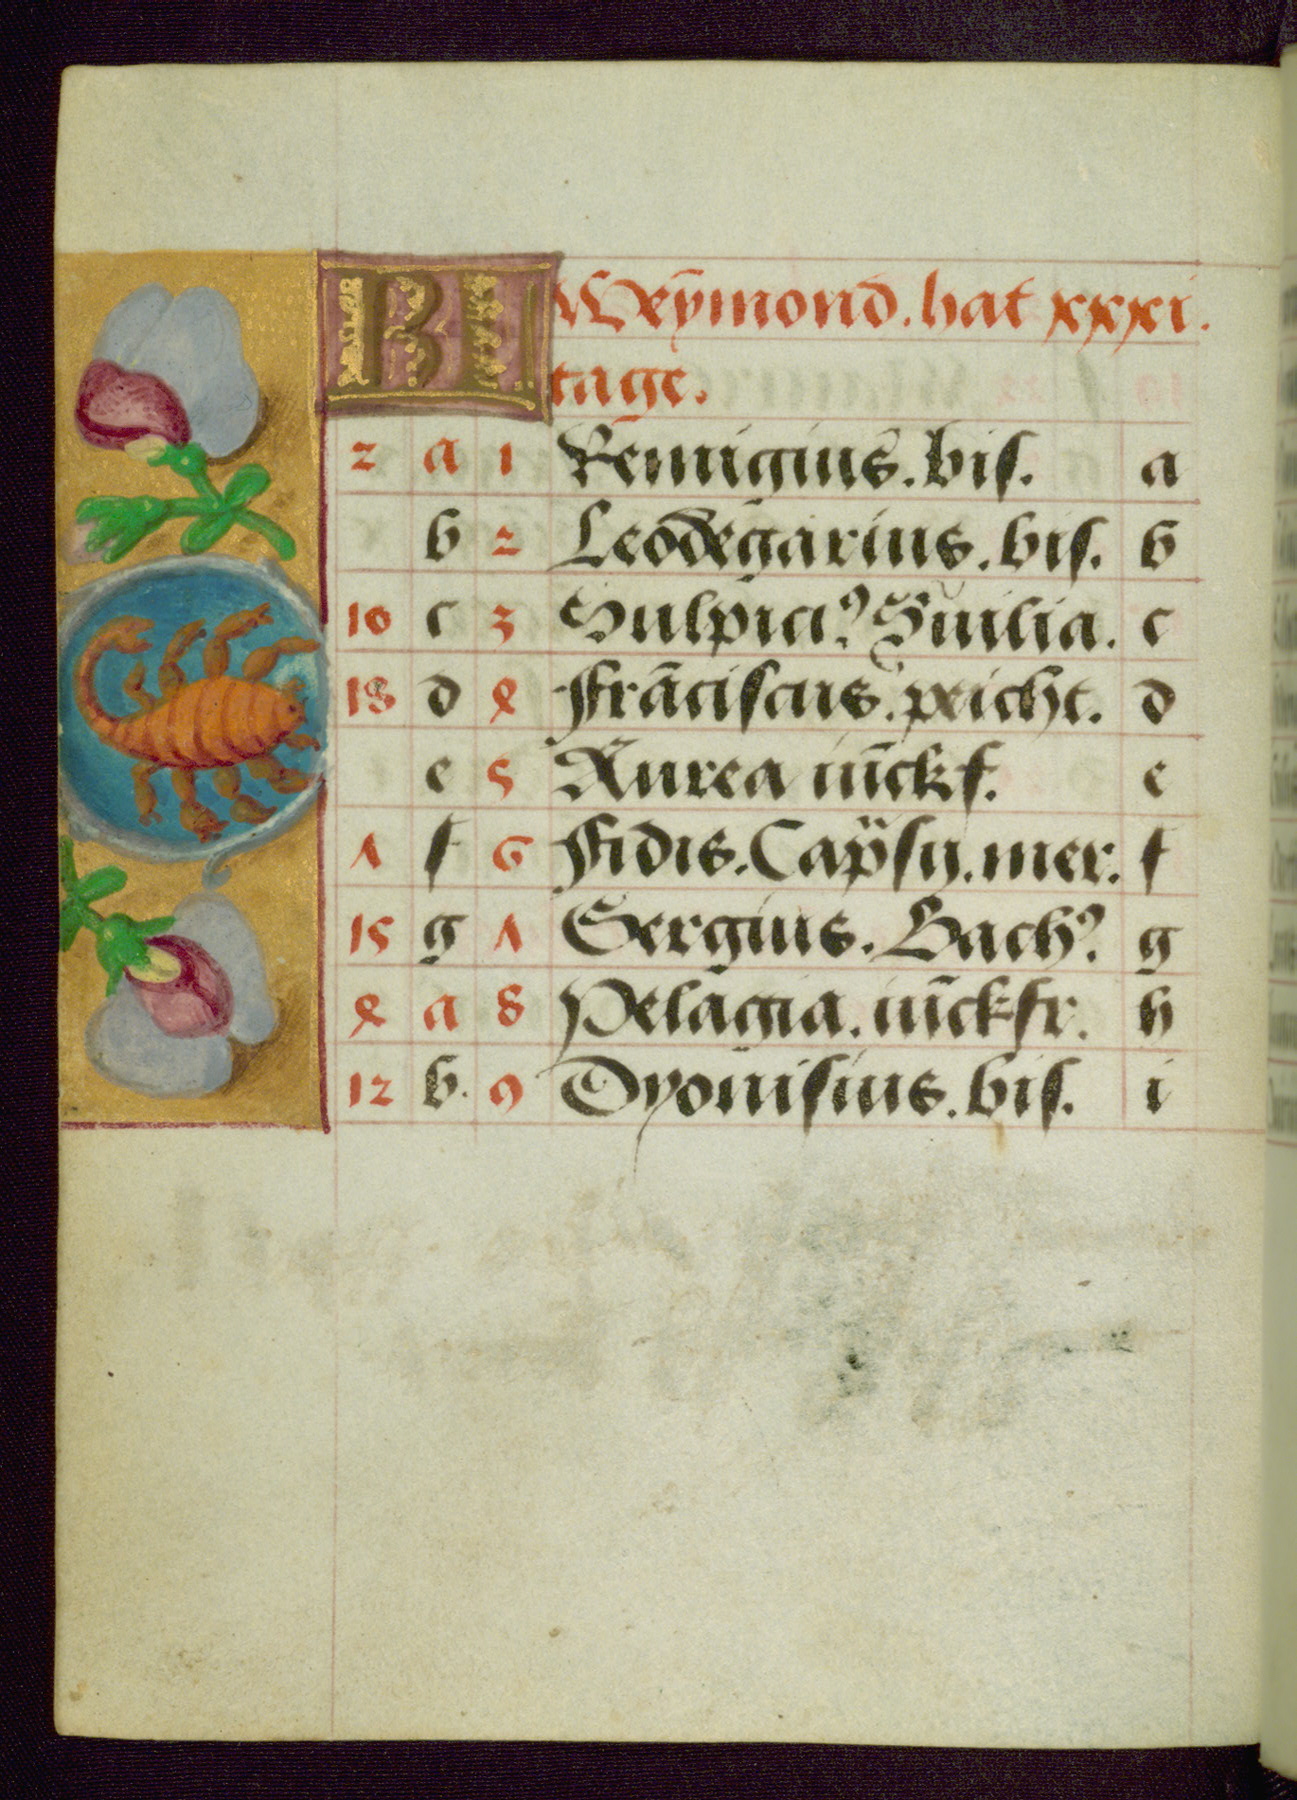 KL Weÿmond. hat xxxi.
tage.
2 a 1 Remigius. bis. a
b 2 Leodegarius. bis. b
10 c 3 Sulpici⁹ c
18 d 4 Franciscus. d
e 5 Aurea iūckf. e
7 f 6 Fidis. mer. f
15 g 7 Sergius. Bach⁹ g
4 a 8 Pelagia. iūckfr. h
12 b. 9 Dyonisius. bis. i